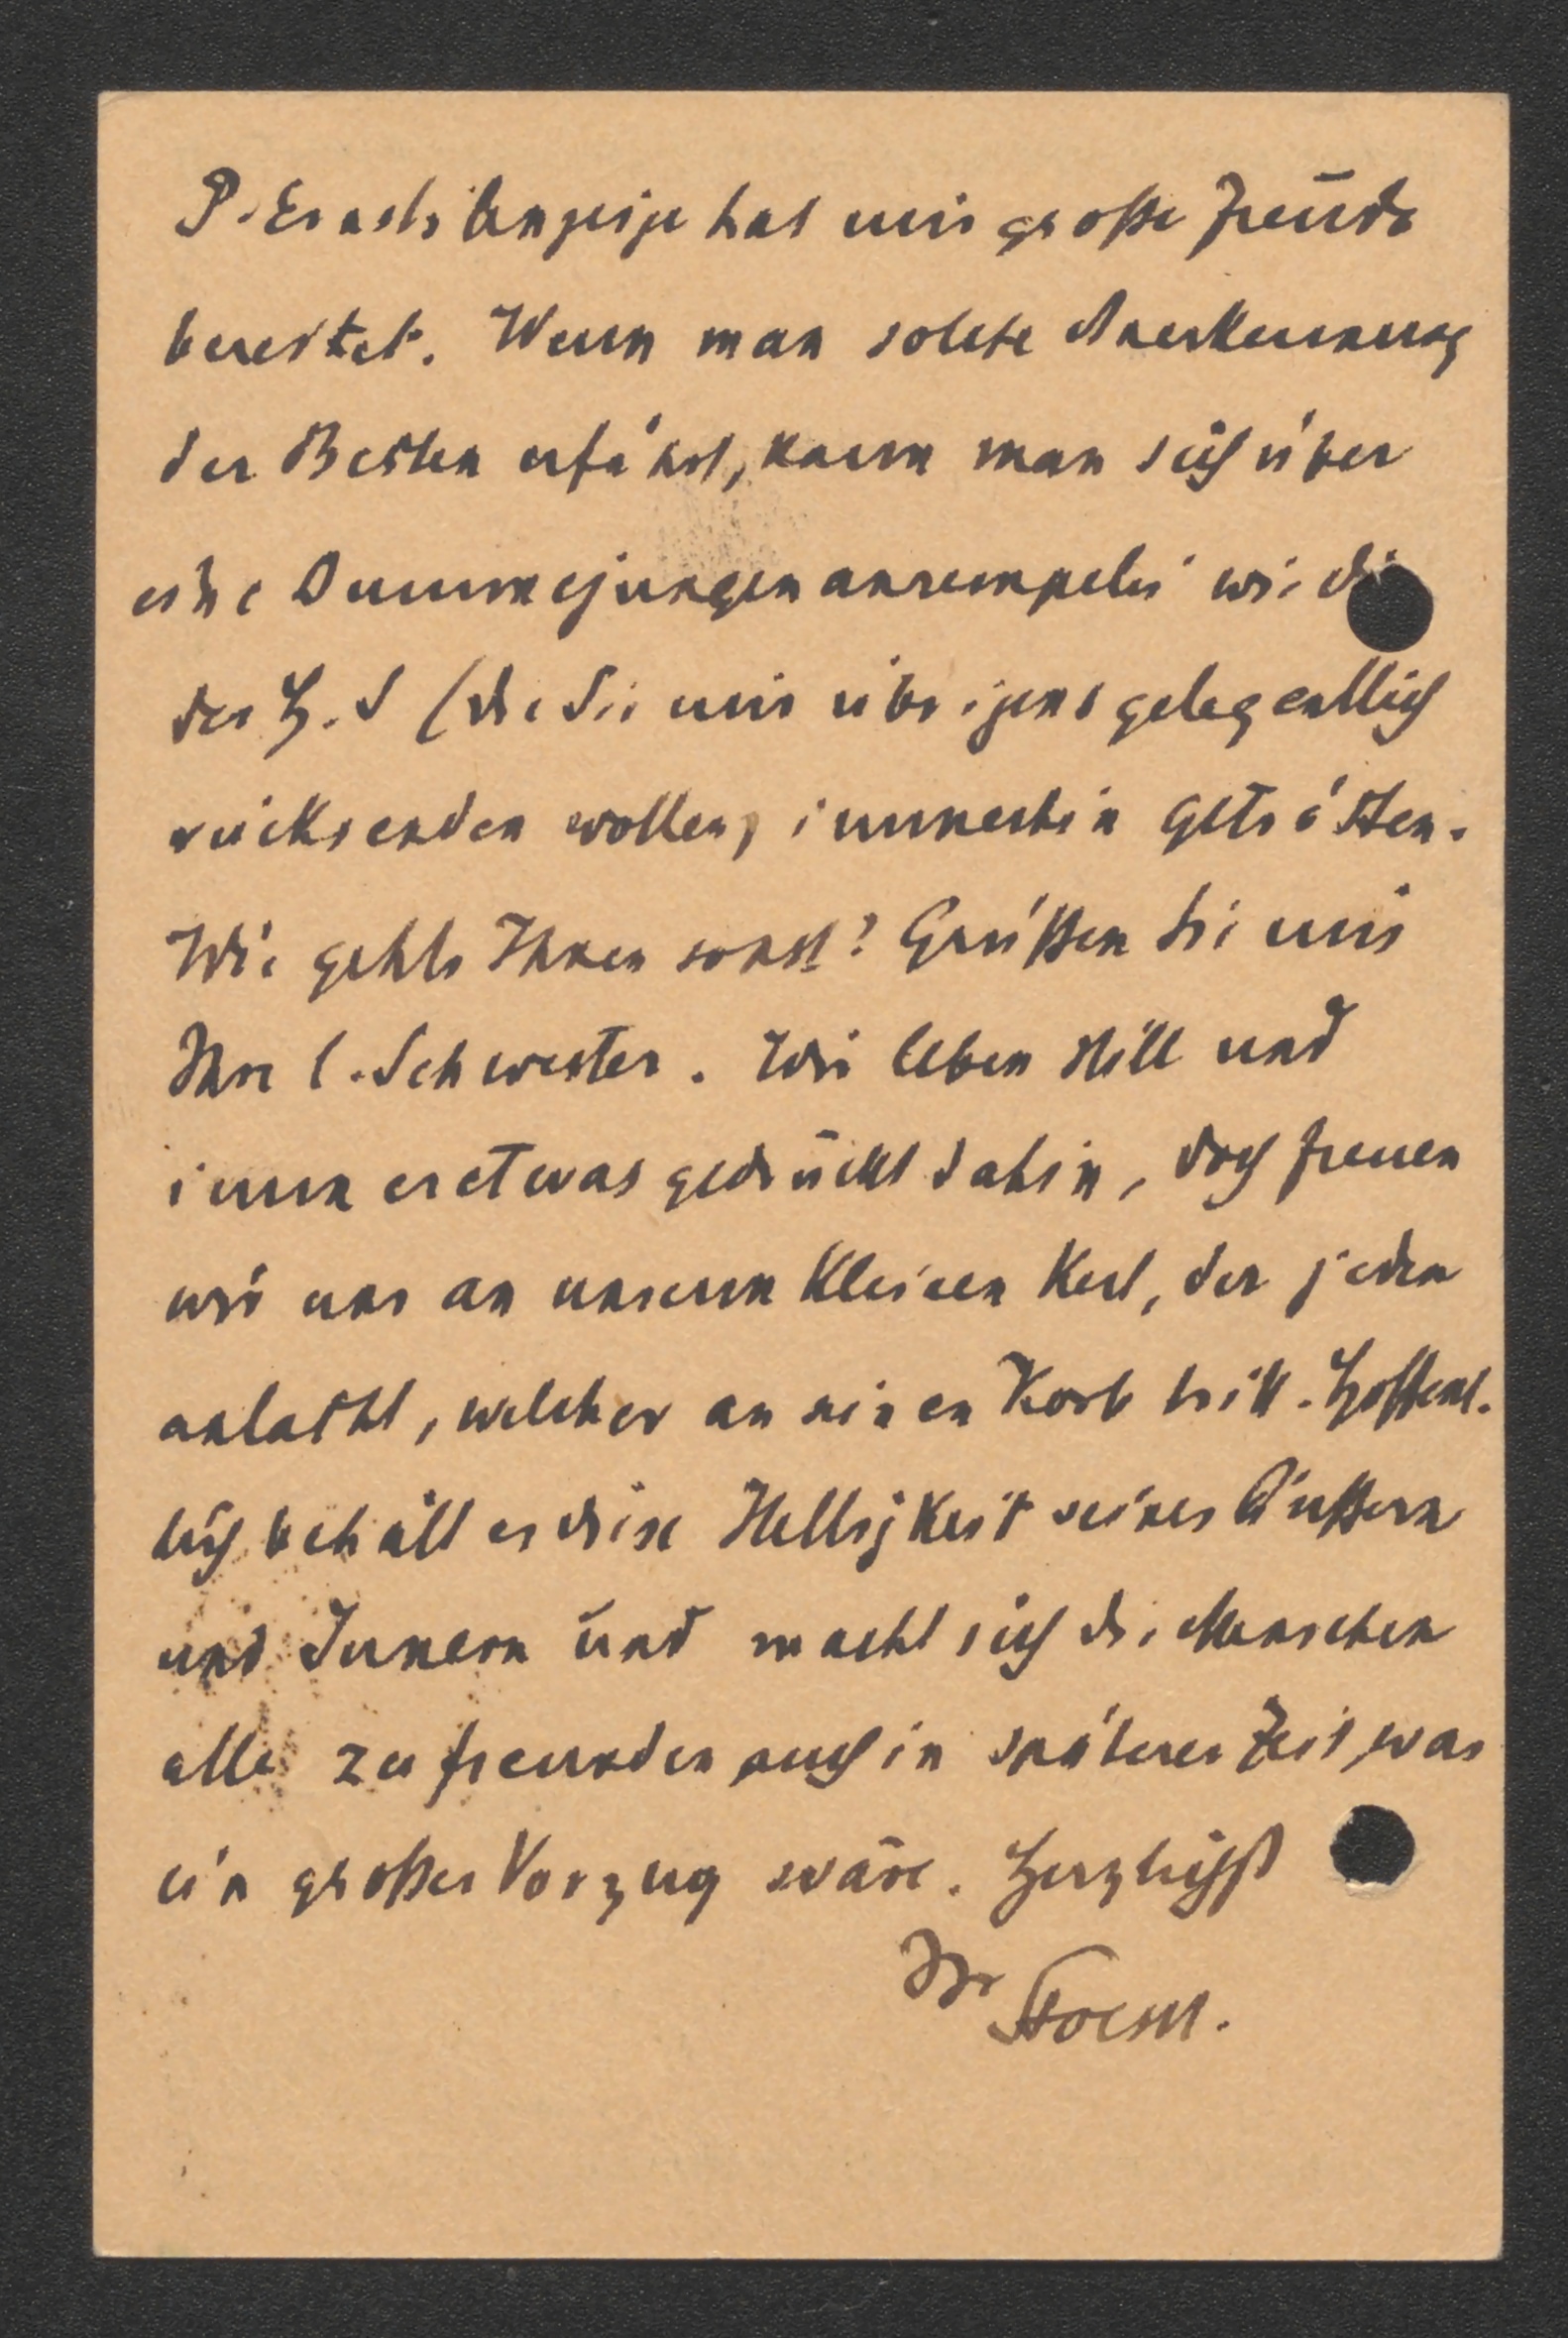 P. Ernsts Anzeige hat mir große Freude
bereitet. Wenn man solche Anerkennung
der Besten erfährt, kann man sich über
eine Dummejungenanrempelei wie die
der H. S (die Sie mir übrigens gelegentlich
rücksenden wollen) immerhin getrösten.
Wie gehts Ihnen sonst? Grüßen Sie mir
Ihre l. Schwester. Wir leben still und
immer etwas gedrückt dahin, doch freuen
wir uns an unserm kleinen Kerl, der jeden
anlacht, welcher an seinen Korb tritt. Hoffent-
lich behält er diese Helligkeit seines Äußern
und Innern und macht sich die Menschen
alle zu freunden auch in späterer Zeit, was
ein großer Vorzug wäre. Herzlichst
Ihr Stoessl.